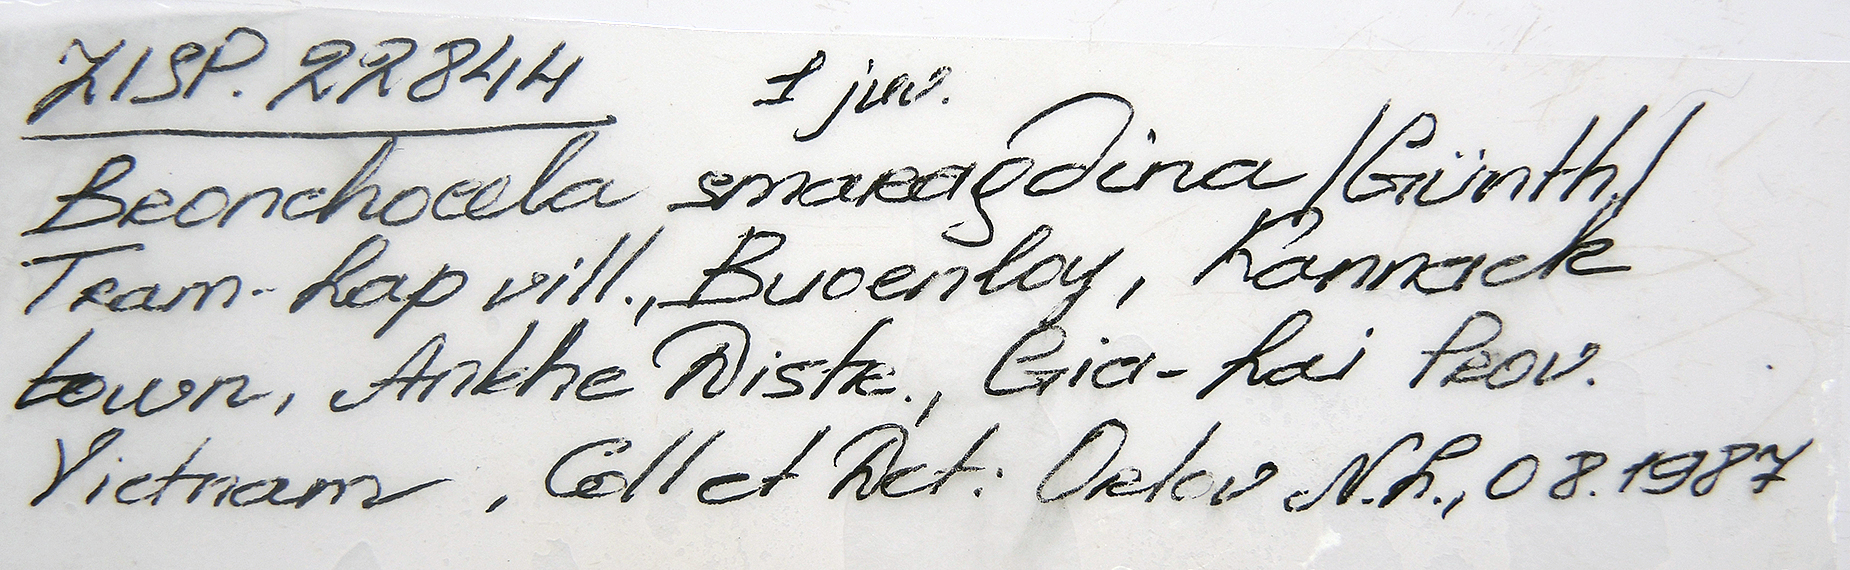 ZISP. 22844 1 juv.
Bronchocela smaragdina /Günth./
Tram-Lap vill., Buoenloy, Kannack
town, Ankhe Distr., Gia-Lai Prov.
Vietnam, Coll et Det: Orlov N.L., 08.1987